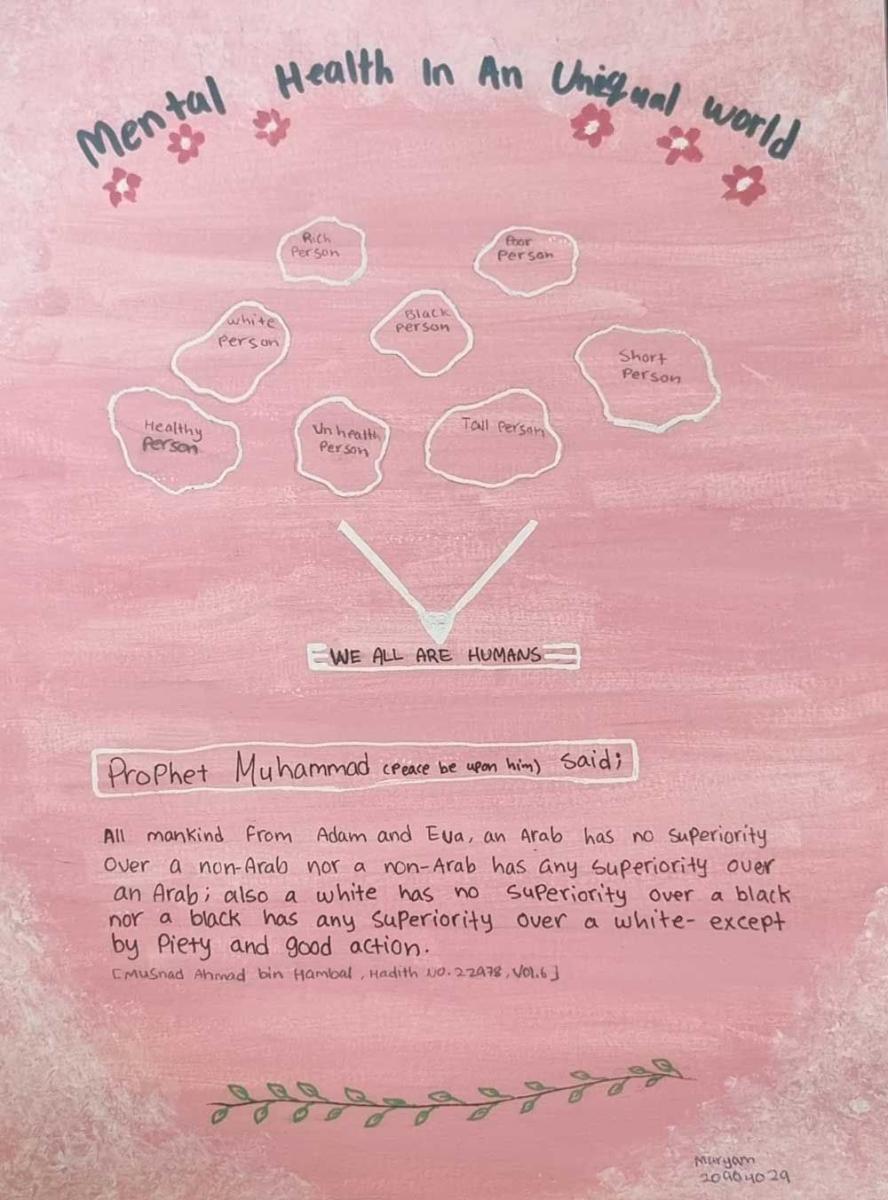 Mental Health In An Uniqual world
Rich
Person
Poor
Person
White
Person
Black
Person
Short
Person
Healthy
Person
Unhealth
Person
Tall Person
WE ALL ARE HUMANS
Prophet Muhammad (Peace be upon him) said;
All mankind from Adam and Eva, an Arab has no superiority
over a non-Arab nor a non-Arab has any superiority over
an Arab; also a white has no superiority over a black
nor a black has any superiority over a white- except
by Piety and good action.
[Musnad Ahmad bin Hambal, Hadith NO. 22978, Vol.6]
Maryam
20904029